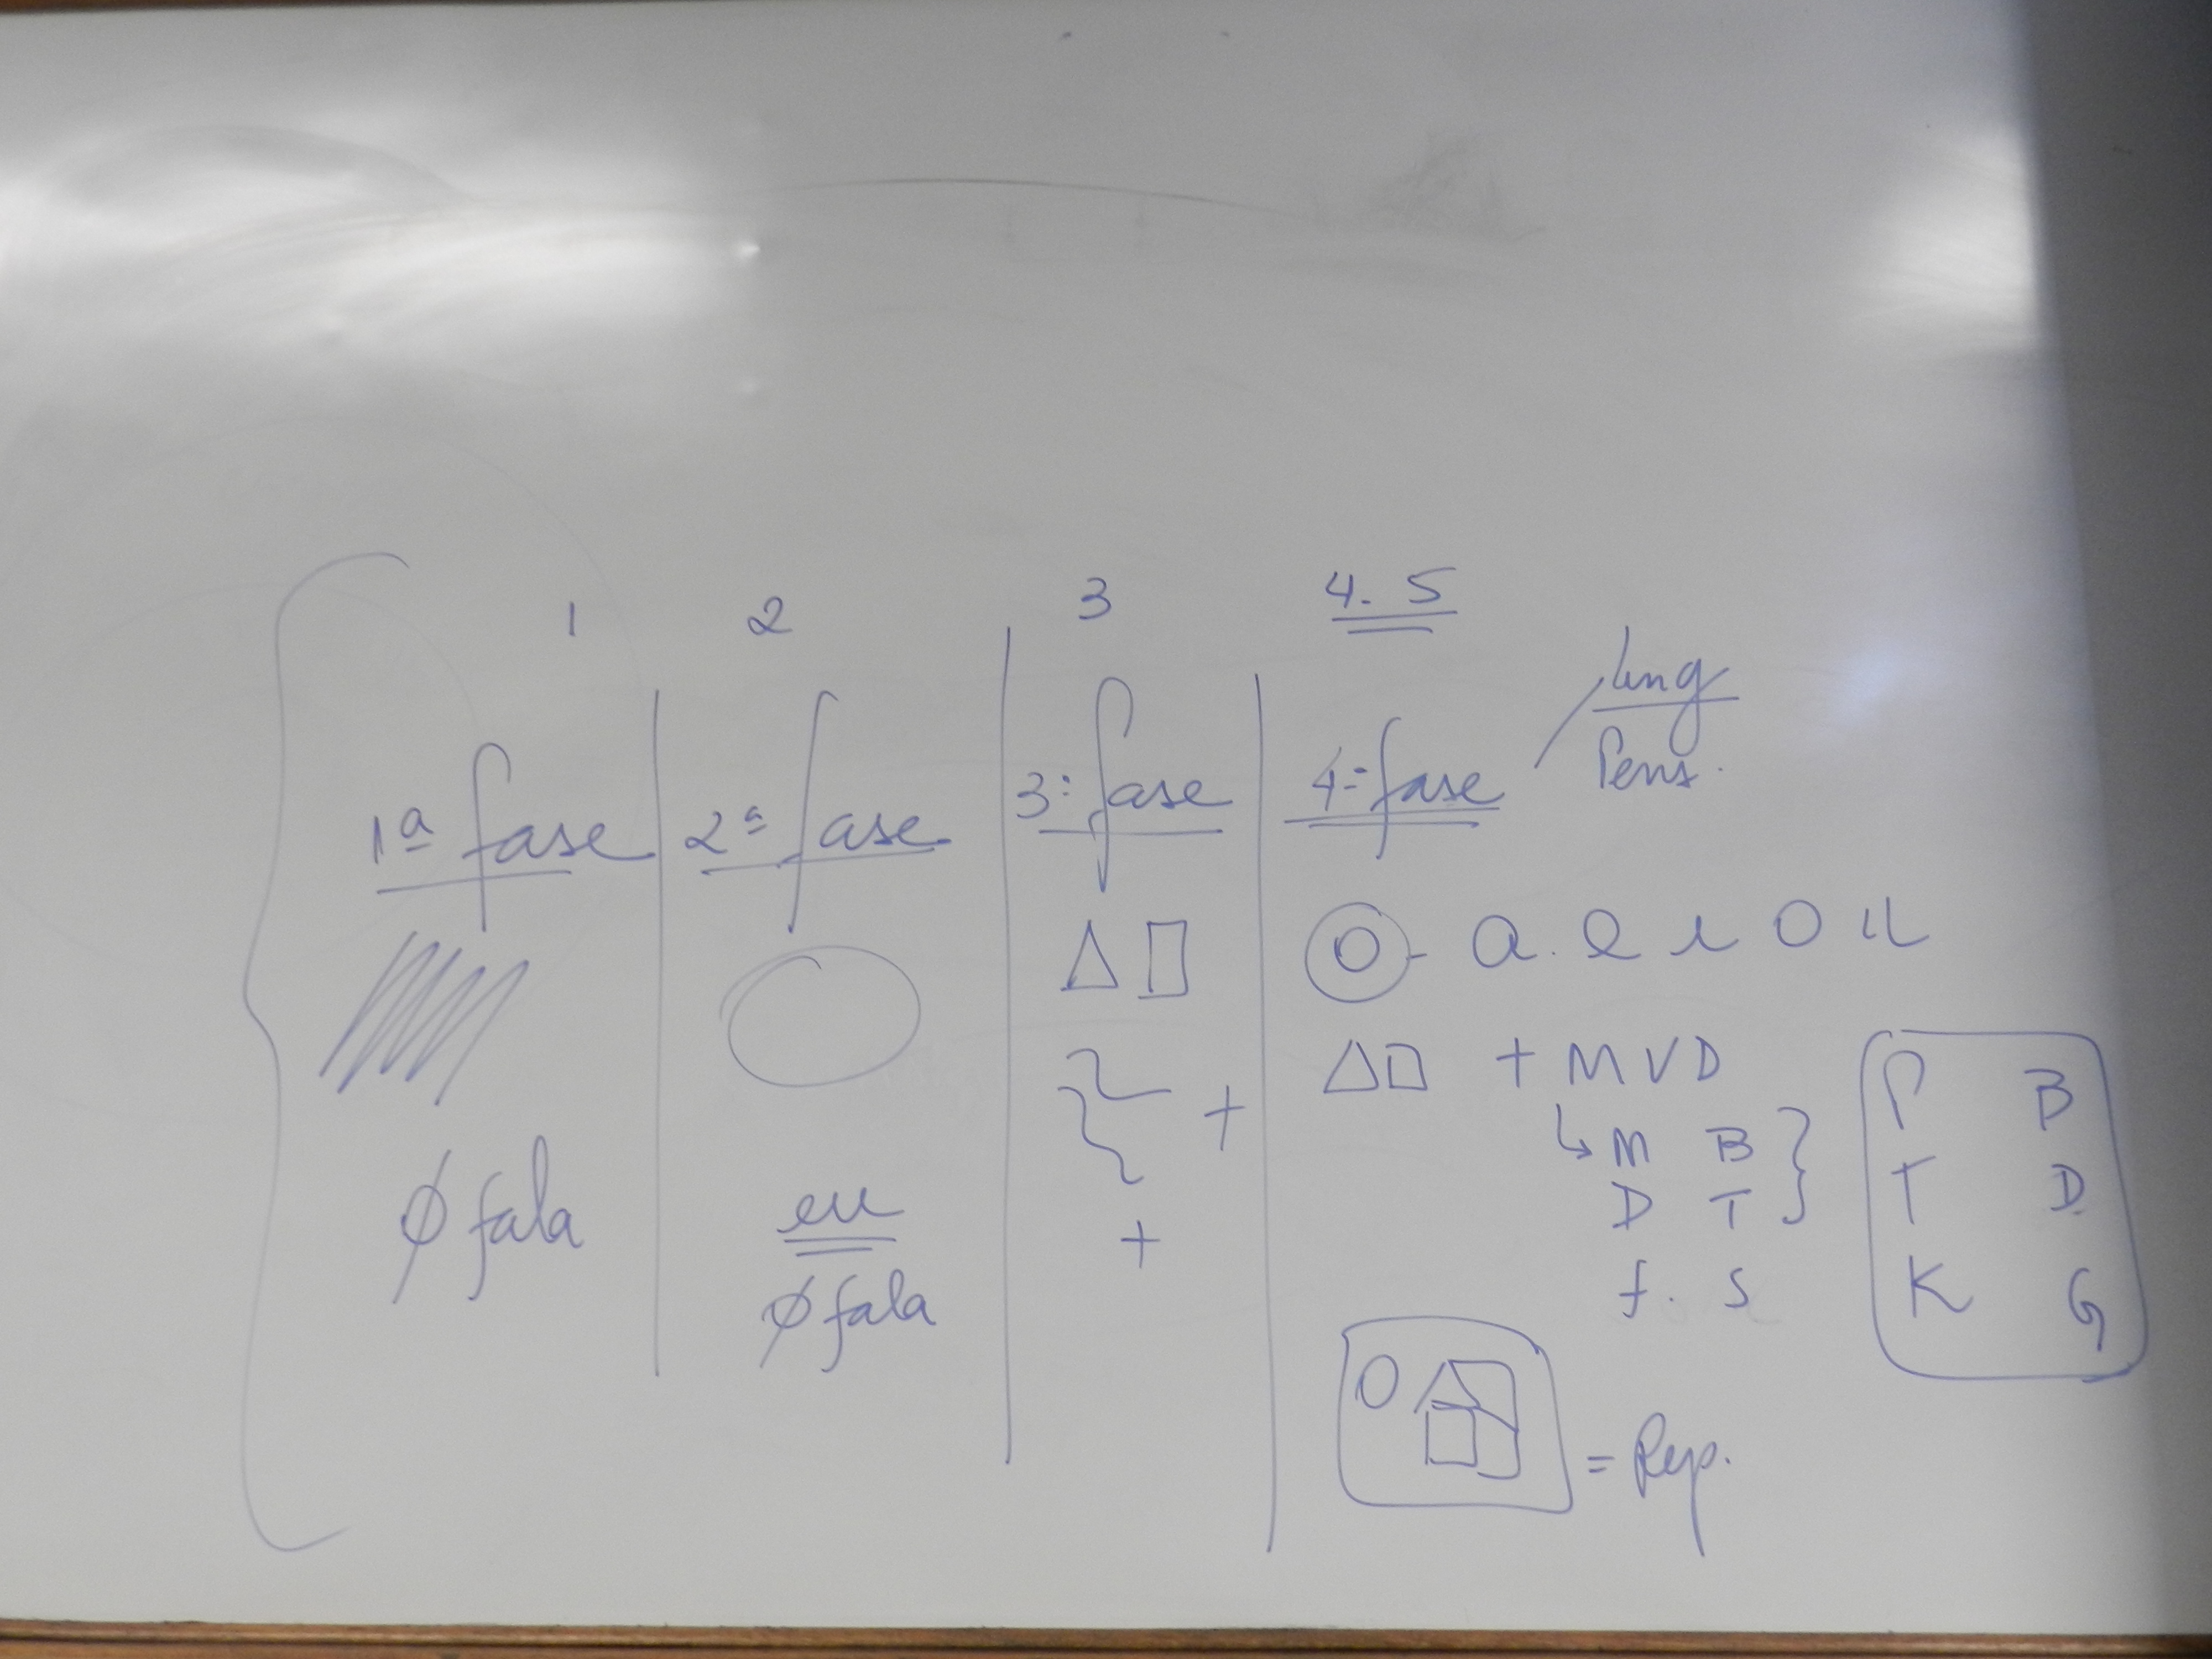 1 2 3 4. 5
Ling
Pens.
1ª fase 2ª fase 3ª fase 4ª fase
a. e i o u
+ M V D
M B
D T
f. S
P B
T D
K G
+
+
Ø fala
eu
Ø fala
O
= Rep.